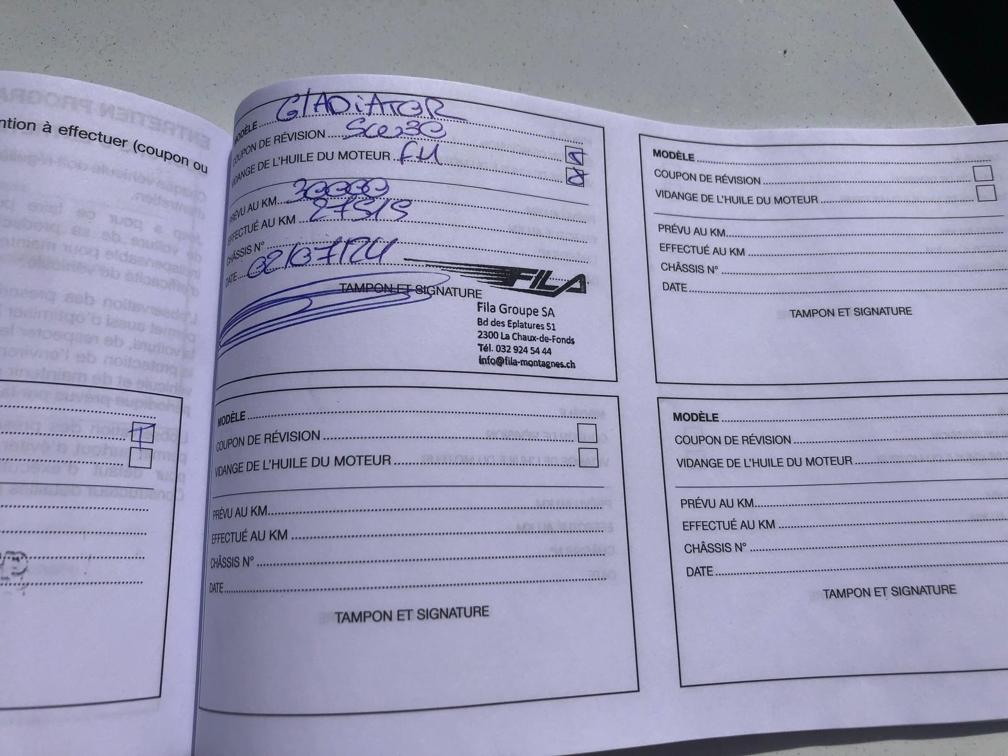 ntion à effectuer (coupon ou
MODÈLE GlADiATOR
COUPON DE RÉVISION 5W30
VIDANGE DE L'HUILE DU MOTEUR FH
PRÉVU AU KM 30000
EFFECTUÉ AU KM 27515
CHÂSSIS N°
DATE 02/07/24
TAMPON ET SIGNATURE
FILA
Fila Groupe SA
Bd des Eplatures 51
2300 La Chaux-de-Fonds
Tél. 032 924 54 44
info@fila-montagnes.ch
MODÈLE
COUPON DE RÉVISION
VIDANGE DE L'HUILE DU MOTEUR
PRÉVU AU KM
EFFECTUÉ AU KM
CHÂSSIS N°
DATE
TAMPON ET SIGNATURE
MODÈLE
COUPON DE RÉVISION
VIDANGE DE L'HUILE DU MOTEUR
PRÉVU AU KM
EFFECTUÉ AU KM
CHÂSSIS N°
DATE
TAMPON ET SIGNATURE
MODÈLE
COUPON DE RÉVISION
VIDANGE DE L'HUILE DU MOTEUR
PRÉVU AU KM
EFFECTUÉ AU KM
CHÂSSIS N°
DATE
TAMPON ET SIGNATURE